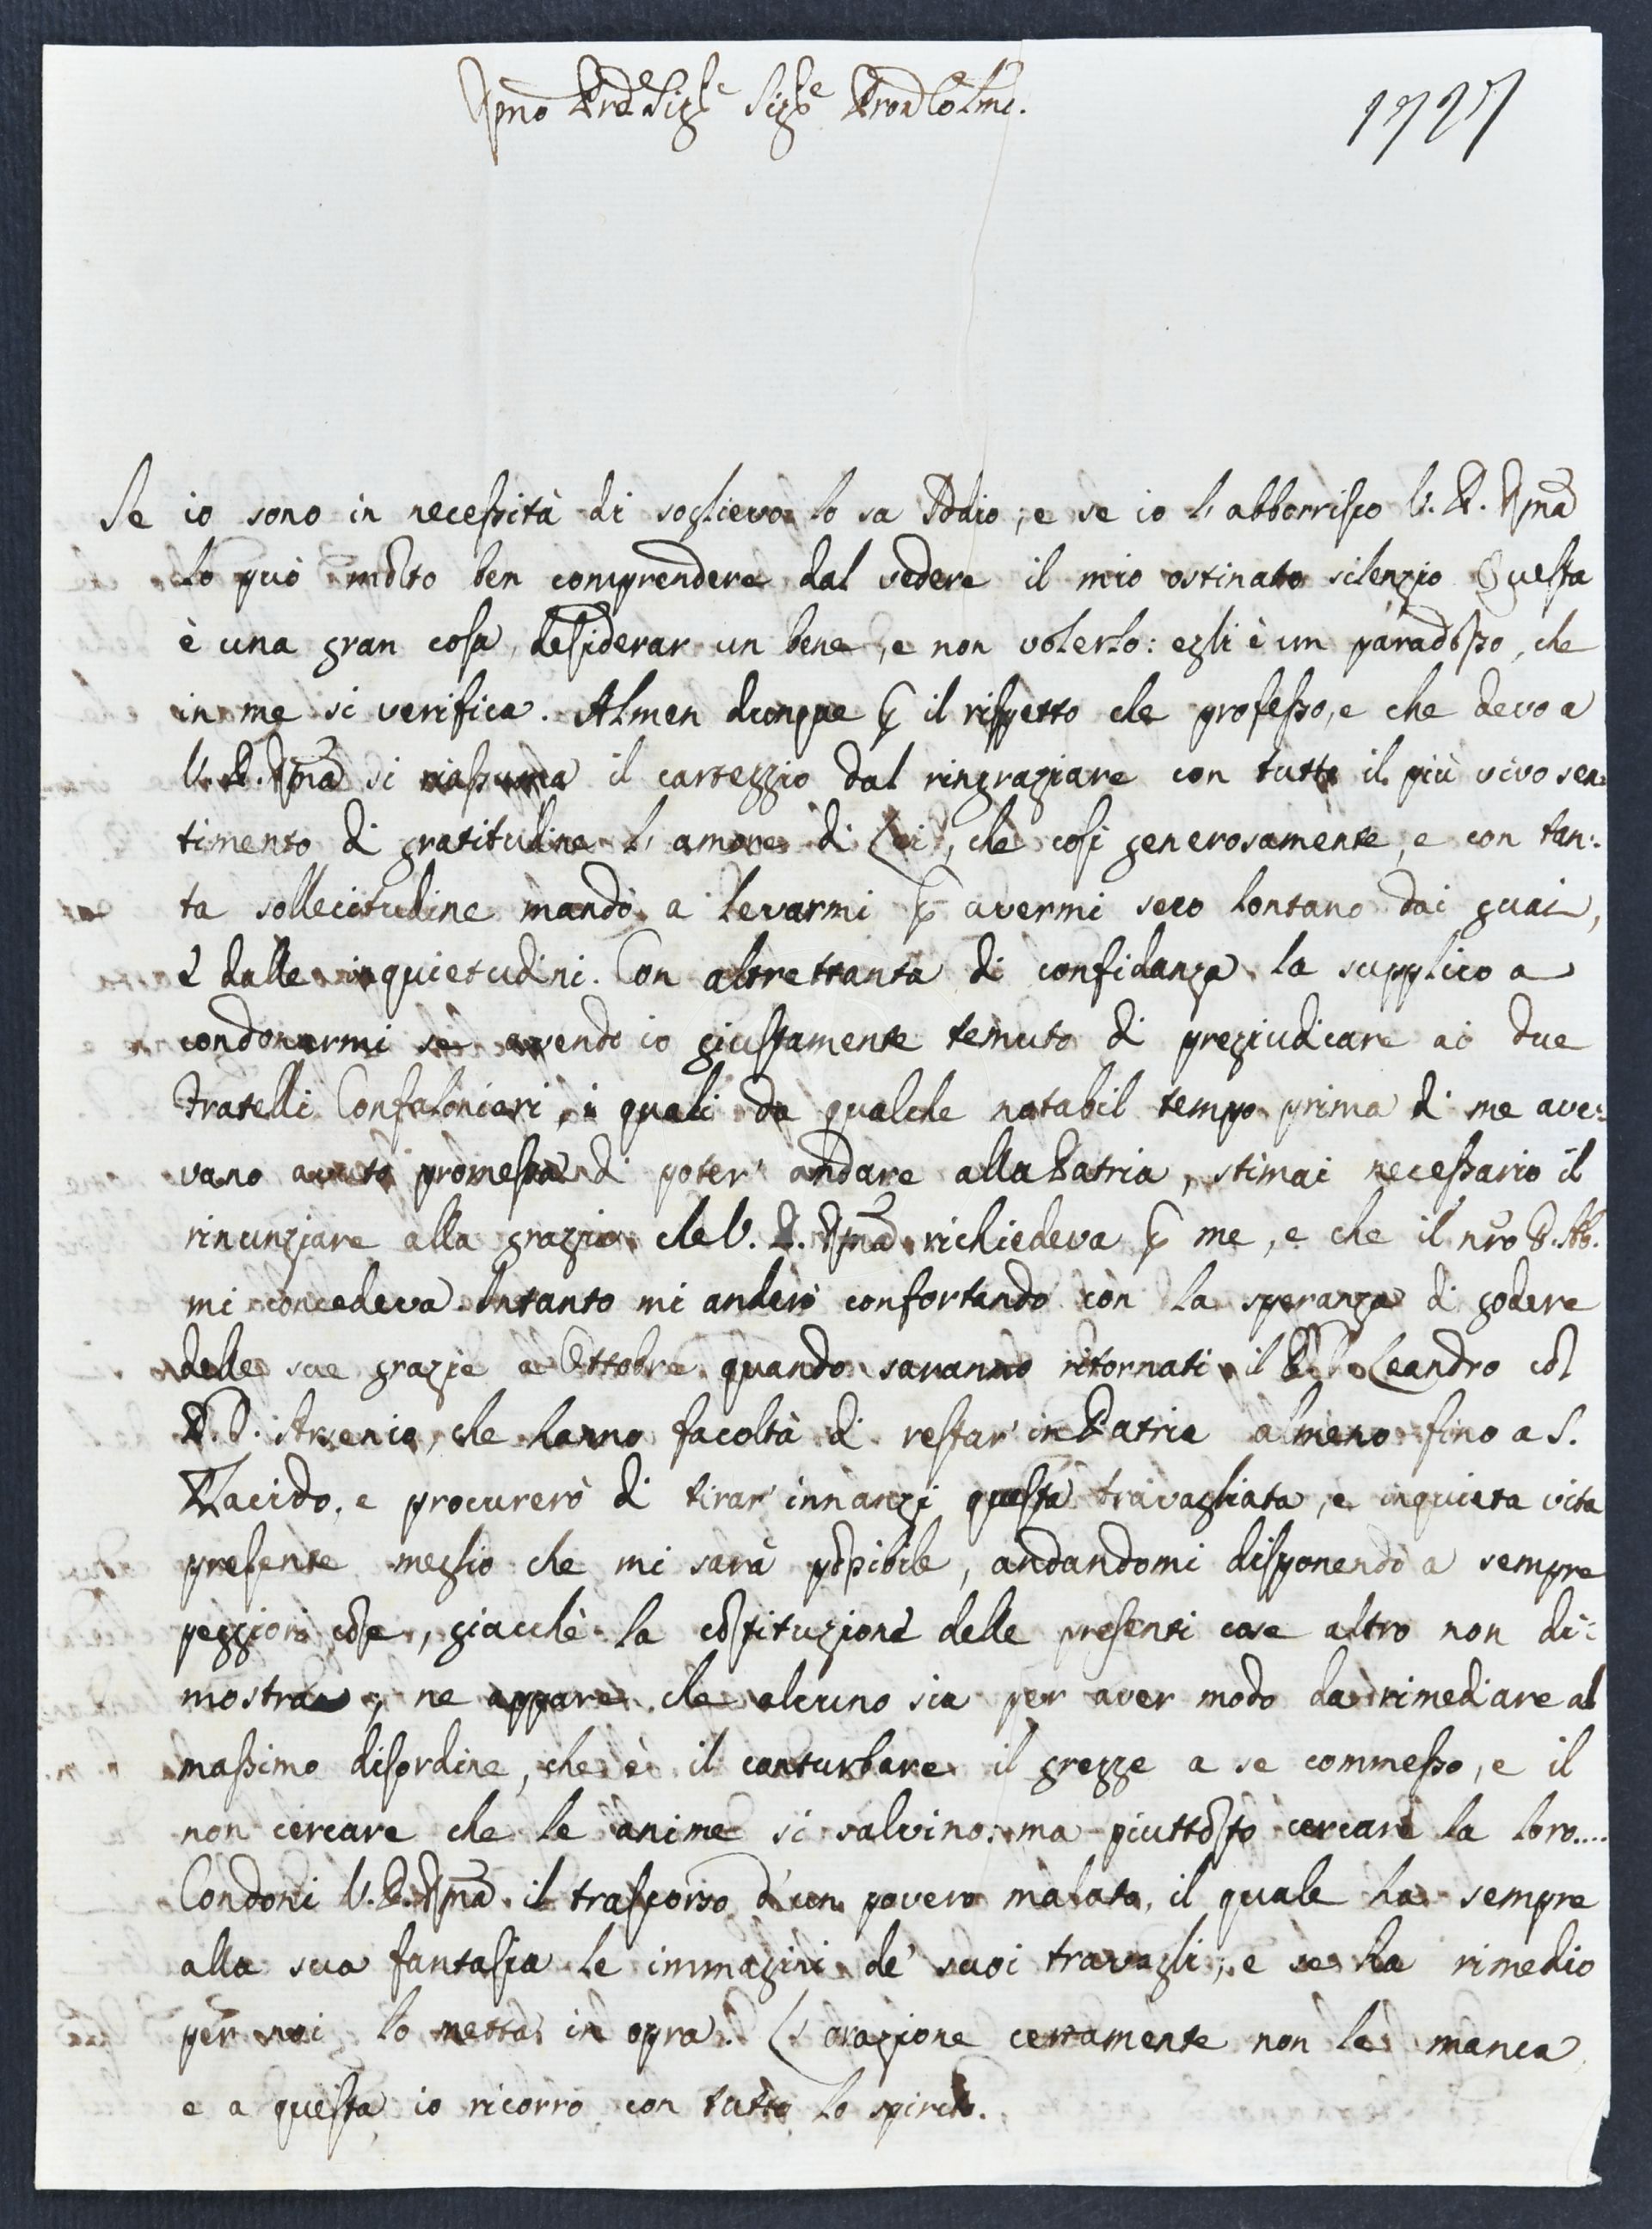 Rmo Prdre Sigre Sigre Prone Colmo.
1727
Se io sono in necessità di soglievo lo sa Iddio; e se io l'abborrisco V. P. Rma
lo può molto ben comprendere dal vedere il mio ostinato silenzio. Questa
è una gran cosa, desiderar un bene, e non volerlo: egli è un paradosso, che
in me si verifica. Almen dunque p il rispetto che professo, e che devo a
V. P. Rma si riassuma il carteggio dal ringraziare con tutto il più vivo sen=
timento di gratitudine l'amore di Lei, che così generosamente, e con tan=
ta sollecitudine mandò a levarmi p avermi seco lontano dai guai,
e dalle inquietudini. Con altrettanta di confidanza la supplico a
condonarmi se avendo io giustamente temuto di pregiudicare ai due
Fratelli Confalonieri, i quali da qualche notabil tempo prima di me ave=
vano avuto promessa di poter' andare alla Patria, stimai necessario il
rinunziare alla grazia che V. P. Rma richiedeva p me, e che il nro P. Ab.
mi concedeva. Intanto mi anderò confortando con la speranza di godere
delle sue grazie a Ottobre quando saranno ritornati il Leandro col
P. D. Arsenio, che hanno facoltà di restar' in Patria almeno fino a S.
Placido, e procurerò di tirar' innanzi questa travagliata, e inquieta vita
presente meglio che mi sarà possibile, andandomi disponendo a sempre
peggiori cose, giacchè la costituzione delle presenti cose altro non di=
mostra, ne appare che alcuno sia per aver modo da rimediare al
massimo disordine, che è il conturbare il gregge a se commesso, e il
non cercare che le anime si salvino, ma piuttosto cercare la loro....
Condoni V. P. Rma il trascorso d'un povero malato, il quale ha sempre
alla sua fantasia le immagini de' suoi travagli; e se ha rimedio
per noi lo metta in opra. L'orazione certamente non le manca,
e a questa io ricorro con tutto lo spirito.